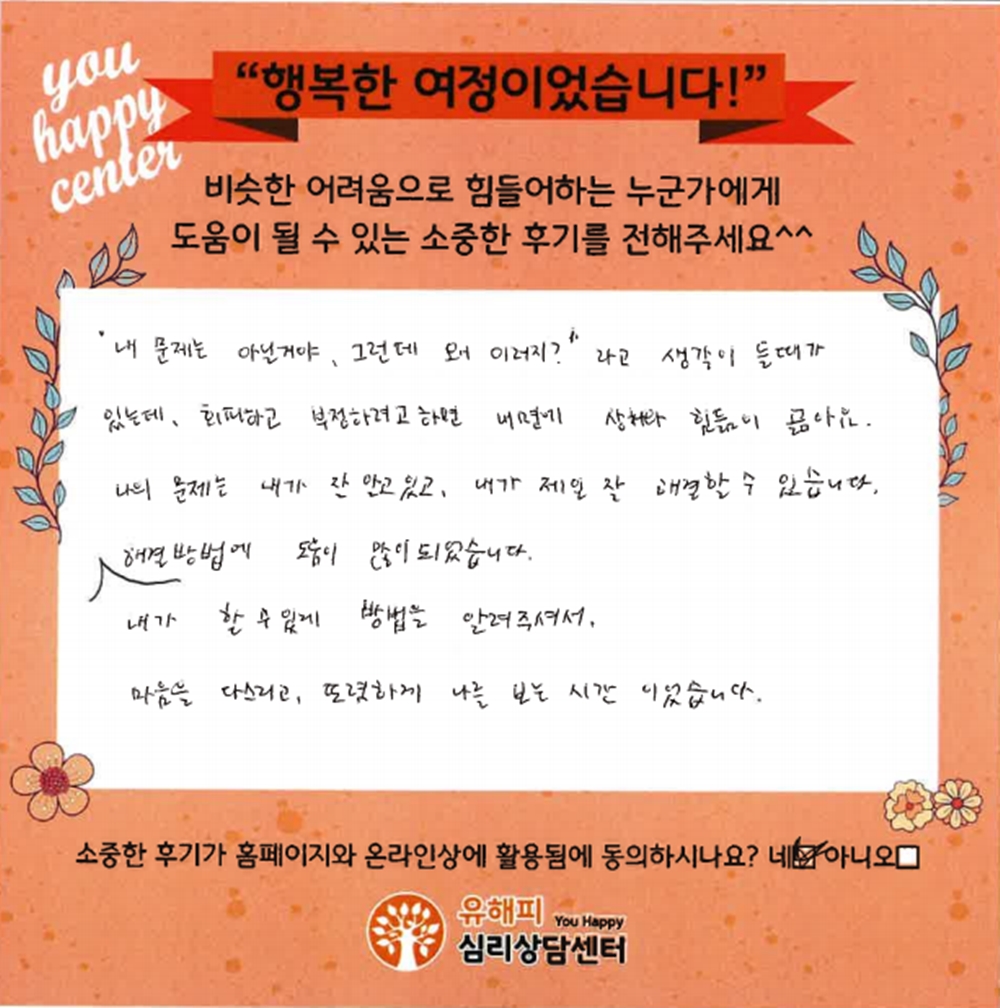 you
happy
center
“행복한 여정이었습니다!”
비슷한 어려움으로 힘들어하는 누군가에게
도움이 될 수 있는 소중한 후기를 전해주세요^^
"내 문제는 아닐거야, 그런데 왜 이러지?" 라고 생각이 들때가
있는데, 회피하고 부정하려고하면 내면에 상처와 힘듦이 곪아요.
나의 문제는 내가 잘 알고있고, 내가 제일 잘 해결할 수 있습니다.
해결방법에 도움이 많이 되었습니다.
내가 할 수 있게 방법을 알려주셔서,
마음을 다스리고, 또렷하게 나를 보는 시간 이었습니다.
소중한 후기가 홈페이지와 온라인상에 활용됨에 동의하시나요? 네☑ 아니오□
유해피 You Happy
심리상담센터